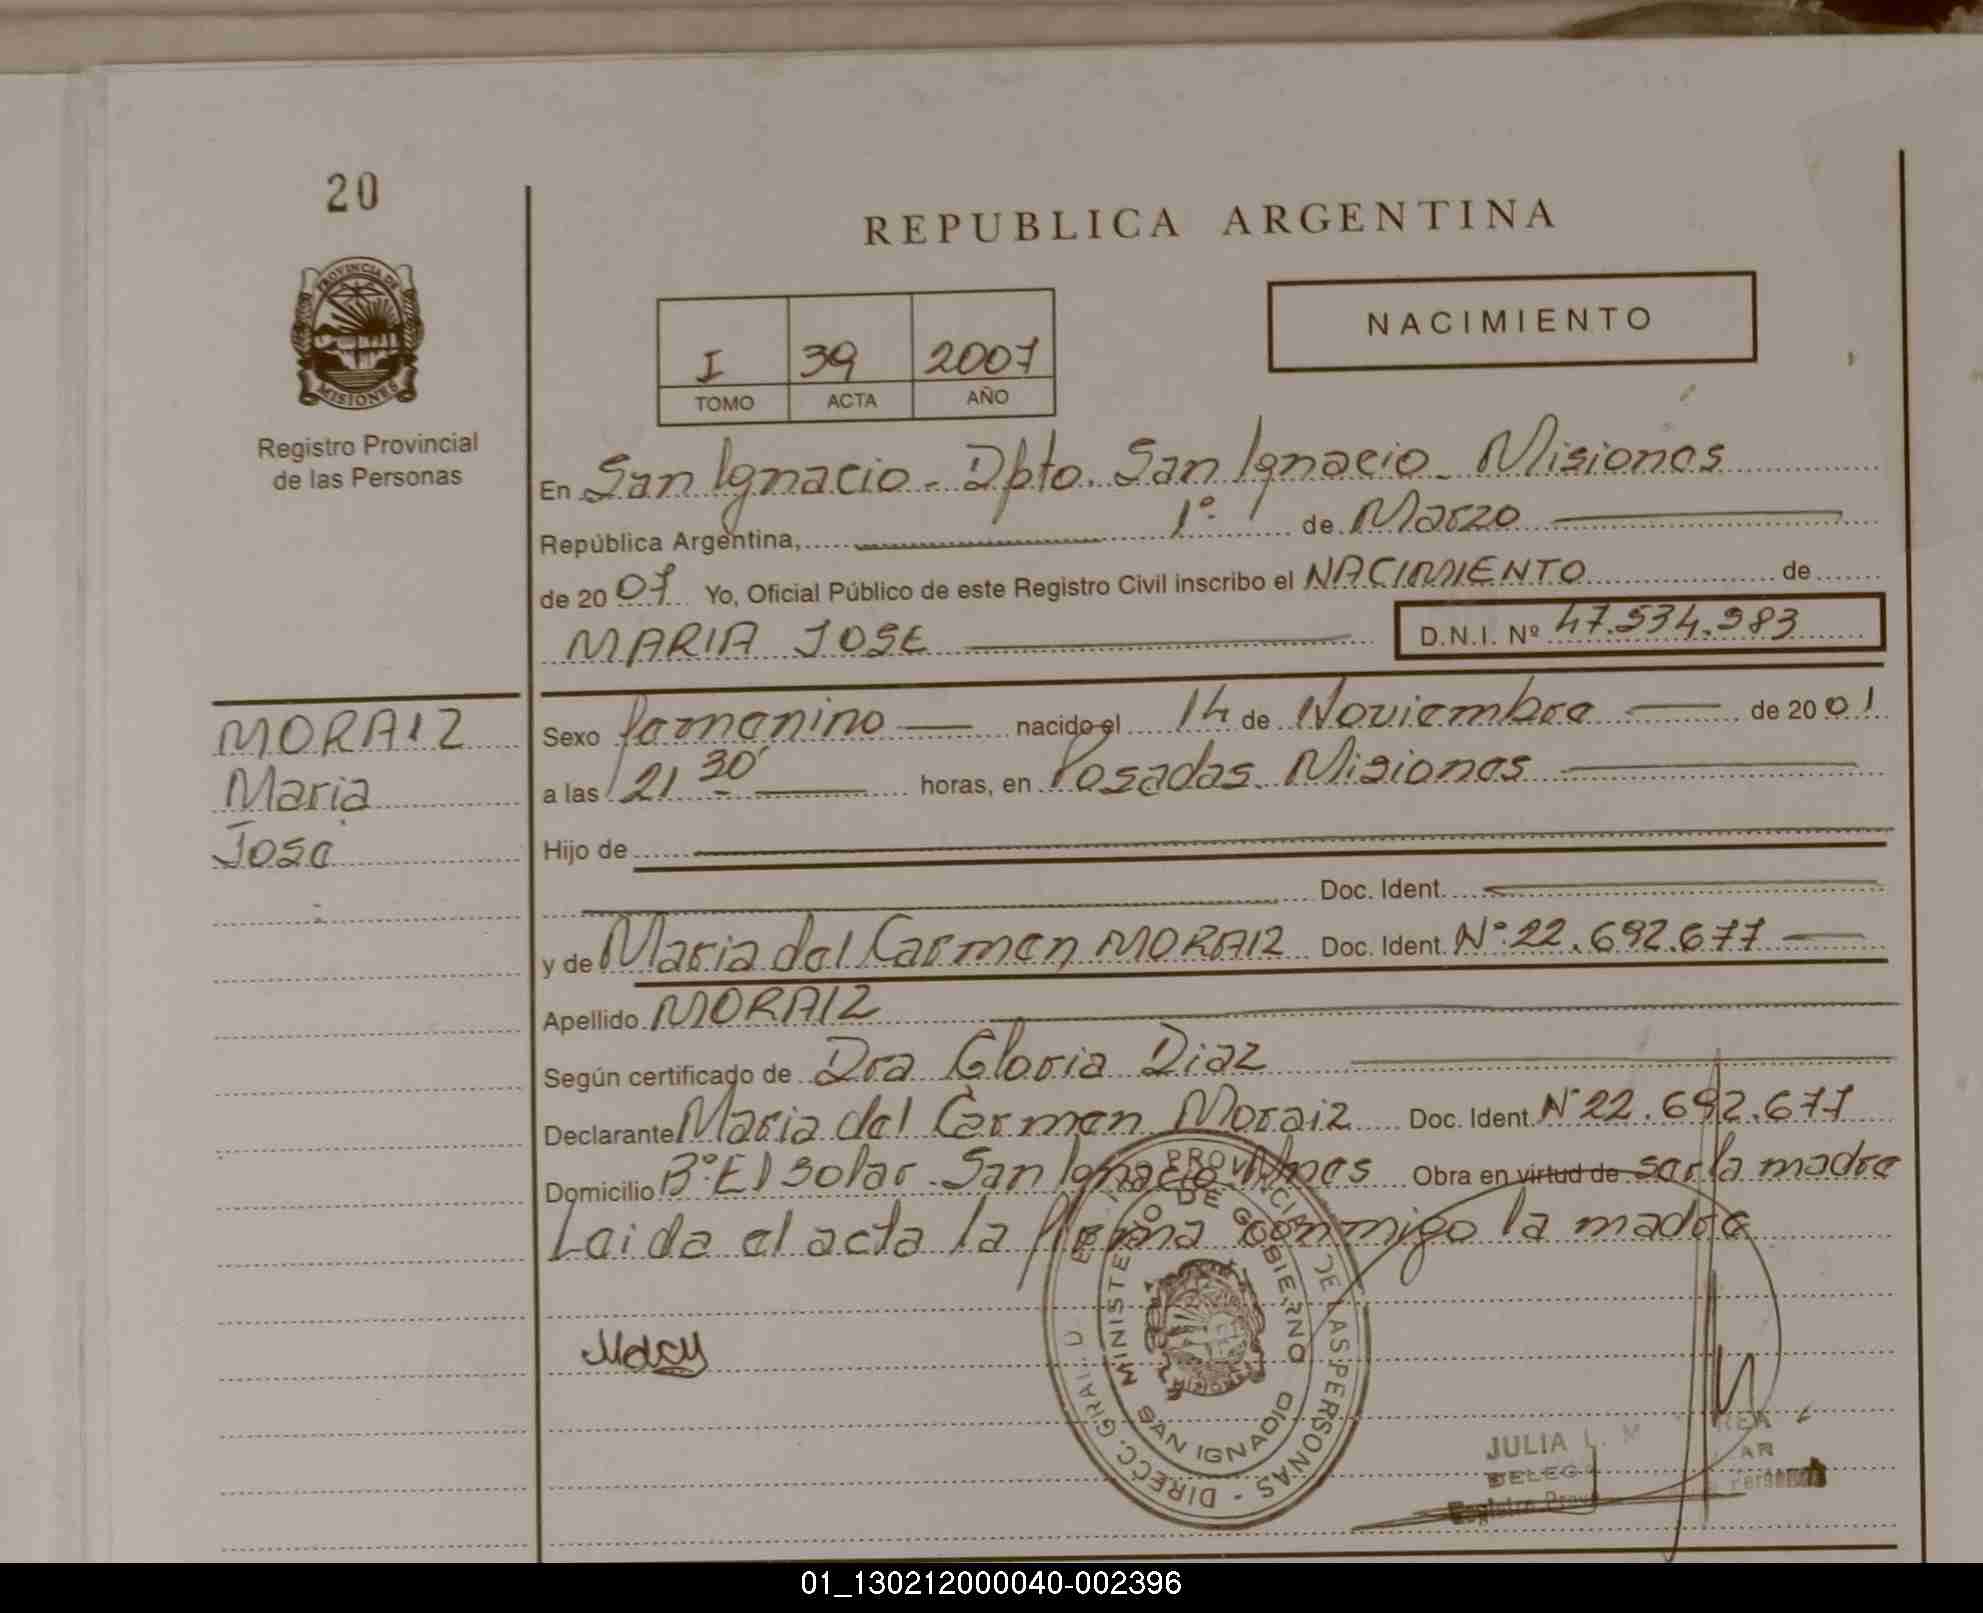 20
REPUBLICA ARGENTINA
PROVINCIA DE
MISIONES
Registro Provincial
de las Personas
NACIMIENTO
I 39 2007
TOMO ACTA AÑO
En San Ignacio - Dpto. San Ignacio - Misiones
República Argentina, 1º de Marzo
de 2007 Yo, Oficial Público de este Registro Civil inscribo el NACIMIENTO de
MARIA JOSE D.N.I. Nº 47.534.983
MORAIZ
Maria
Jose
Sexo femenino nacido el 14 de Noviembre de 2001
a las 21 30' horas, en Posadas. Misiones
Hijo de
Doc. Ident.
y de Maria del Carmen MORAIZ Doc. Ident. Nº 22.692.677
Apellido MORAIZ
Según certificado de Dra Gloria Diaz
Declarante Maria del Carmen Moraiz Doc. Ident. Nº 22.692.677
Domicilio Bº El Solar. San Ignacio Mnes Obra en virtud de ser la madre
Leida el acta la firma conmigo la madre
MINISTERIO DE GOBIERNO
SAN IGNACIO
DIRECC. GRAL. D PROVINCIAL DE LAS PERSONAS
MISIONES
JULIA L.
01_130212000040-002396